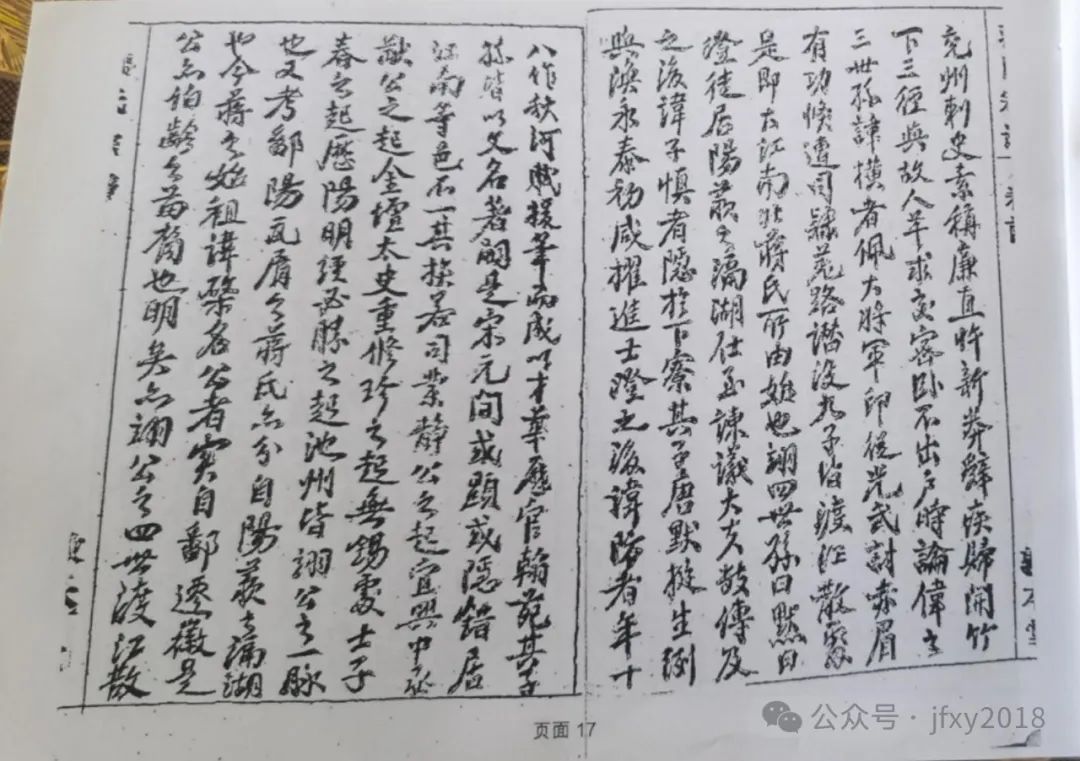 兖州刺史素稱廉直忤新莽辭疾歸開竹
下三徑與故人羊求交密臥不出戶時論偉之
三世孫諱横者佩大將軍印從光武討赤眉
有功惧遭司隸羗路譖没九子皆渡江散處
是即大江南北蔣氏所由始也翊四世孫曰默曰
澄徒居陽羨之滆湖仕至諫議大夫数傳及
之後諱子慎者隱於下寮其子唐默挺生冽
與渙永泰初咸擢進士澄之後諱防者年十
八作秋河賦援筆而成以才華歷官翰苑其子
孫皆以文名著嗣是宋元間或顯或隱錯居
江南等邑不一其族若司業静公之起宜興中丞
猷公之起金壇太史重修珍之起無錫處士子
春之起歷陽明經必勝之起池州皆翊公之一脉
也又考鄱陽瓦屑之蔣氏亦分自陽羨之滆湖
也今蔣之始祖諱榮名公者實自鄱遷徽是
公亦伯齡之苗裔也明矣亦翊公之四世渡江散
页面 17
公众号·jfxy2018